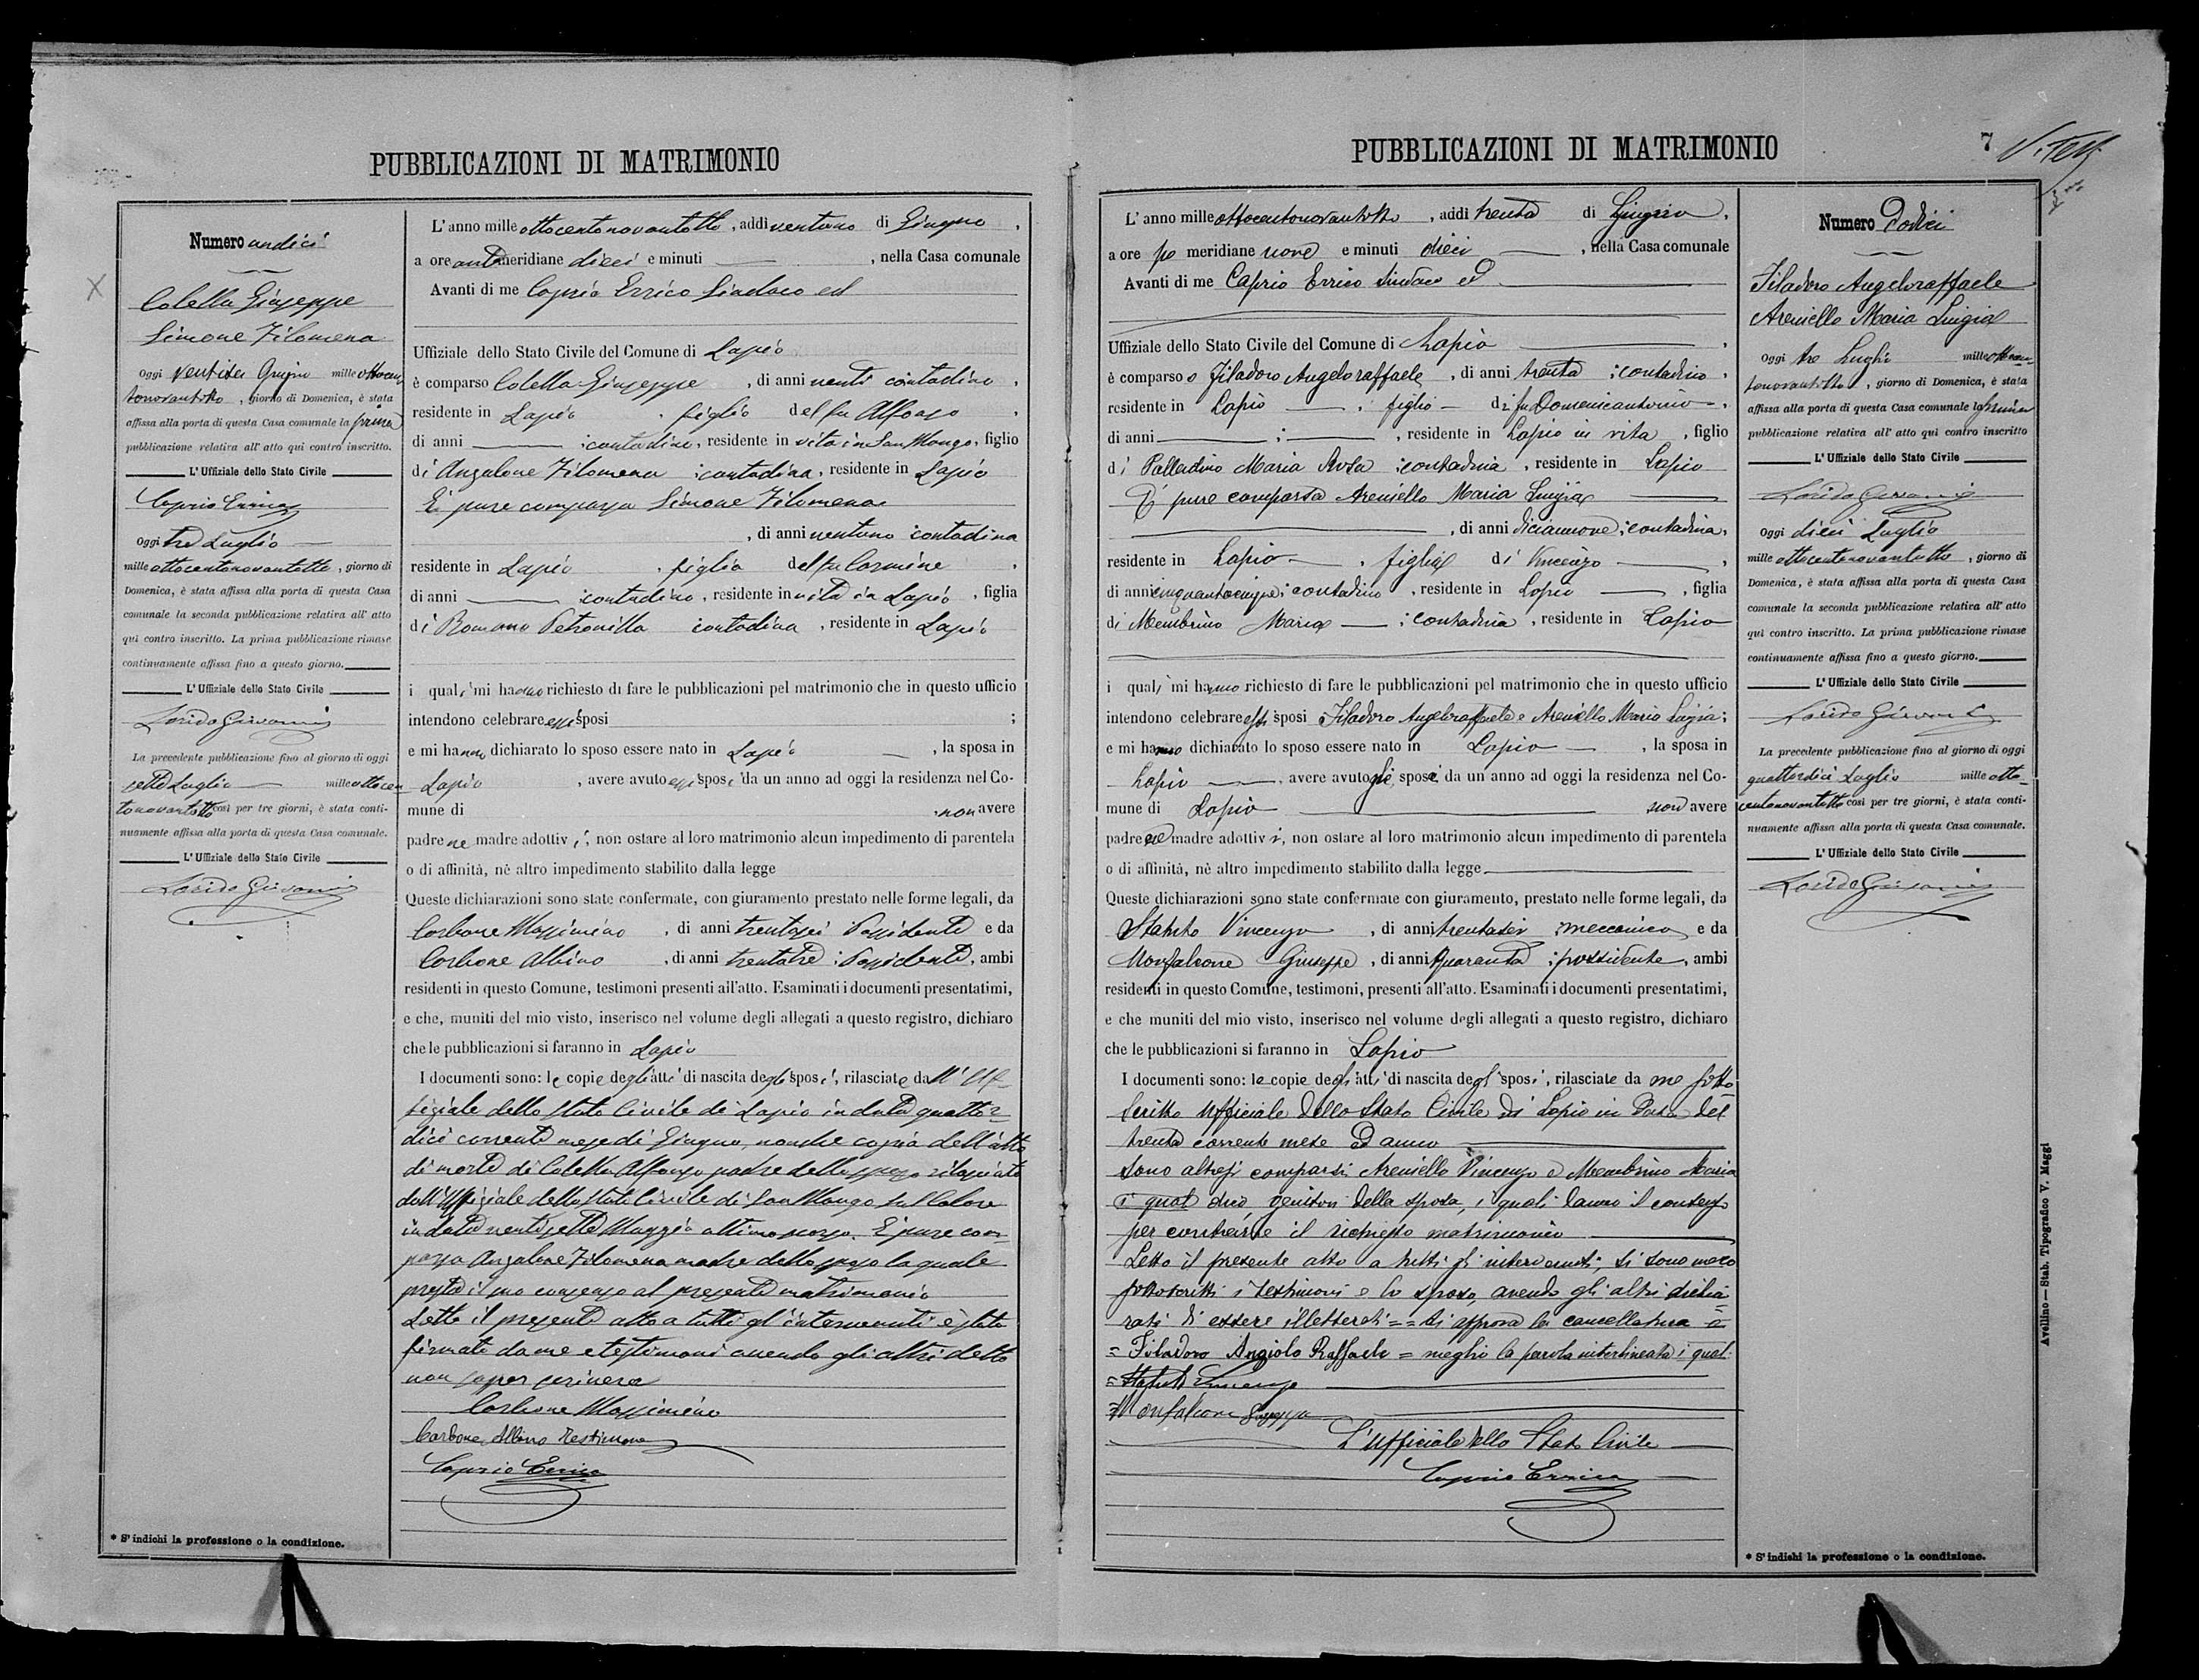 PUBBLICAZIONI DI MATRIMONIO
Numero undici
Colella Giuseppe
Simone Filomena
Oggi ventisei Giugno mille ottocen
tonovantotto, giorno di Domenica, è stata
affissa alla porta di questa Casa comunale la prima
pubblicazione relativa all' atto qui contro inscritto.
L' Uffiziale dello Stato Civile
Caprio Errico
Oggi tre Luglio
mille ottocentonovantotto, giorno di
Domenica, è stata affissa alla porta di questa Casa
comunale la seconda pubblicazione relativa all' atto
qui contro inscritto. La prima pubblicazione rimase
continuamente affissa fino a questo giorno.
L' Uffiziale dello Stato Civile
Giovanni
La precedente pubblicazione fino al giorno di oggi
sette Luglio mille ottocen
tonovantotto così per tre giorni, è stata conti-
nuamente affissa alla porta di questa Casa comunale.
L' Uffiziale dello Stato Civile
Giovanni
* S' indichi la professione o la condizione.
L' anno mille ottocentonovantotto, addì ventuno di Giugno,
a ore antimeridiane dieci e minuti , nella Casa comunale
Avanti di me Caprio Errico Sindaco ed
Uffiziale dello Stato Civile del Comune di Lapio
è comparso Colella Giuseppe, di anni venti contadino,
residente in Lapio, figlio del fu Alfonso,
di anni ; contadino, residente in vita in San Mango, figlio
di Anzalone Filomena ; contadina, residente in Lapio
È pure comparsa Simone Filomena
, di anni ventuno contadina
residente in Lapio, figlia del fu Carmine,
di anni ; contadino, residente in vita in Lapio, figlia
di Romano Petronilla contadina, residente in Lapio
i quali mi hanno richiesto di fare le pubblicazioni pel matrimonio che in questo ufficio
intendono celebrare essi sposi ;
e mi hanno dichiarato lo sposo essere nato in Lapio , la sposa in
Lapio , avere avuto essi sposi da un anno ad oggi la residenza nel Co-
mune di , non avere
padre ne madre adottivi; non ostare al loro matrimonio alcun impedimento di parentela
o di affinità, nè altro impedimento stabilito dalla legge
Queste dichiarazioni sono state confermate, con giuramento prestato nelle forme legali, da
Carbone Massimino , di anni trentasei Possidente e da
Carbone Albino , di anni trentatre ; Possidente, ambi
residenti in questo Comune, testimoni presenti all'atto. Esaminati i documenti presentatimi,
e che, muniti del mio visto, inserisco nel volume degli allegati a questo registro, dichiaro
che le pubblicazioni si faranno in Lapio
I documenti sono: le copie degli atti di nascita degli sposi, rilasciate dall' Uf-
fiziale dello Stato Civile di Lapio in data quattor
dici corrente mese di Giugno, nonche copia dell'atto
di morte di Colella Alfonso padre dello sposo rilasciata
dall'Uffiziale dello Stato Civile di San Mango sul Calore
in data ventisette Maggio ultimo scorso. È pure com-
parsa Anzalone Filomena madre dello sposo la quale
presta il suo consenso al presente matrimonio
Letto il presente atto a tutti gl'intervenuti è stato
firmato da me e testimoni avendo gli altri detto
non saper scrivere
Carbone Massimino
Carbone Albino Testimone
Caprio Errico
PUBBLICAZIONI DI MATRIMONIO
7
L' anno mille ottocentonovantotto, addì trenta di Giugno,
a ore po meridiane nove e minuti dieci , nella Casa comunale
Avanti di me Caprio Errico Sindaco ed
Uffiziale dello Stato Civile del Comune di Lapio
è comparso Filadoro Angeloraffaele, di anni trenta ; contadino,
residente in Lapio , figlio di fu Domenicantonio,
di anni ; , residente in Lapio in vita, figlio
di Palladino Maria Rosa ; contadina, residente in Lapio
È pure comparsa Areniello Maria Luigia
, di anni diciannove ; contadina,
residente in Lapio , figlia di Vincenzo ,
di anni cinquantacinque ; contadino, residente in Lapio , figlia
di Membrino Maria ; contadina, residente in Lapio
i quali mi hanno richiesto di fare le pubblicazioni pel matrimonio che in questo ufficio
intendono celebrare essi sposi Filadoro Angeloraffaele e Areniello Maria Luigia;
e mi hanno dichiarato lo sposo essere nato in Lapio , la sposa in
Lapio , avere avuto gli sposi da un anno ad oggi la residenza nel Co-
mune di Lapio non avere
padre nè madre adottivi, non ostare al loro matrimonio alcun impedimento di parentela
o di affinità, nè altro impedimento stabilito dalla legge
Queste dichiarazioni sono state confermate con giuramento, prestato nelle forme legali, da
Statuto Vincenzo , di anni trentasei ; meccanico e da
Monfalcone Giuseppe, di anni quaranta ; possidente, ambi
residenti in questo Comune, testimoni, presenti all'atto. Esaminati i documenti presentatimi,
e che muniti del mio visto, inserisco nel volume degli allegati a questo registro, dichiaro
che le pubblicazioni si faranno in Lapio
I documenti sono: le copie degli atti di nascita degl' sposi, rilasciate da me sotto
scritto Ufficiale dello Stato Civile di Lapio in data del
trenta corrente mese ed anno
Sono altresì comparsi Areniello Vincenzo e Membrino Maria
i quali due genitori della sposa, i quali danno il consenso
per contrarre il richiesto matrimonio
Letto il presente atto a tutti gl' intervenuti, si sono meco
sottoscritti i testimoni e lo sposo, avendo gli altri dichia
rati di essere illetterati = = Si approva la cancellatura
= Filadoro Angiolo Raffaele = meglio la parola interlineata i quali
= Statuto Vincenzo
= Monfalcone Giuseppe
L'Ufficiale dello Stato Civile
Caprio Errico
Numero Dodici
Filadoro Angeloraffaele
Areniello Maria Luigia
Oggi tre Luglio mille ottocen
tonovantotto, giorno di Domenica, è stata
affissa alla porta di questa Casa comunale la prima
pubblicazione relativa all' atto qui contro inscritto
L' Uffiziale dello Stato Civile
Giovanni
Oggi dieci Luglio
mille ottocentonovantotto, giorno di
Domenica, è stata affissa alla porta di questa Casa
comunale la seconda pubblicazione relativa all' atto
qui contro inscritto. La prima pubblicazione rimase
continuamente affissa fino a questo giorno.
L' Uffiziale dello Stato Civile
Giovanni
La precedente pubblicazione fino al giorno di oggi
quattordici Luglio mille otto-
centonovantotto così per tre giorni, è stata conti-
nuamente affissa alla porta di questa Casa comunale.
L' Uffiziale dello Stato Civile
Giovanni
* S' indichi la professione o la condizione.
Avellino — Stab. Tipografico V. Maggi